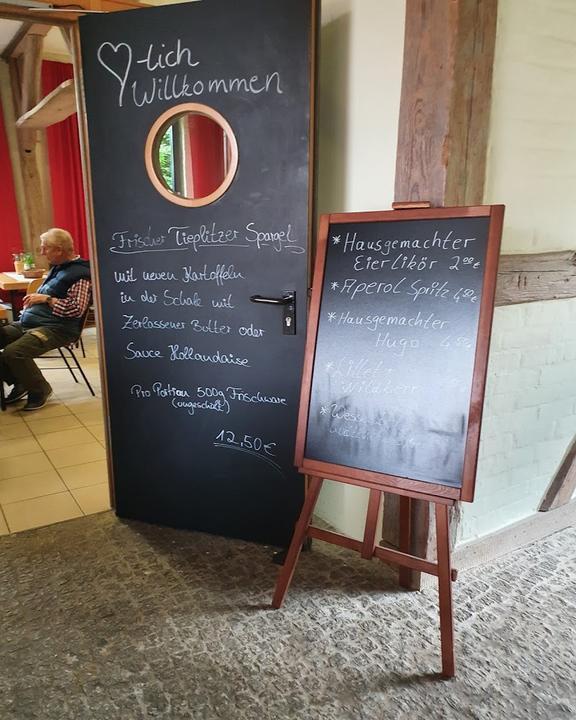 ♡-lich
Willkommen
Frischer Tieplitzer Spargel
mit neuen Kartoffeln
in der Schale mit
Zerlassener Butter oder
Sauce Hollandaise
Pro Portion 500g Frischware
(ungeschält)
12,50€
* Hausgemachter
Eierlikör 2⁰⁰€
* Aperol Spritz 4,50€
* Hausgemachter
Hugo 4,50
* Lillet
Wildberr